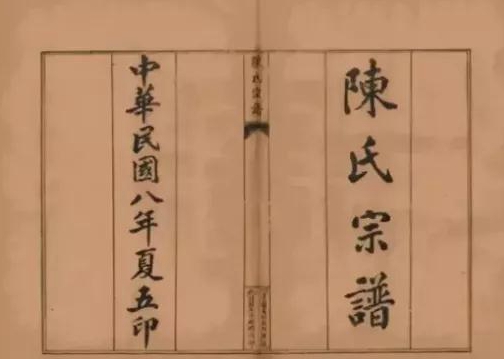 陳氏宗譜
陳氏宗譜
中華民國八年夏五印